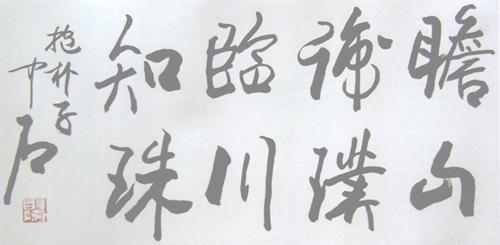 瞻山
識璞
臨川
知珠
抱朴子
中石